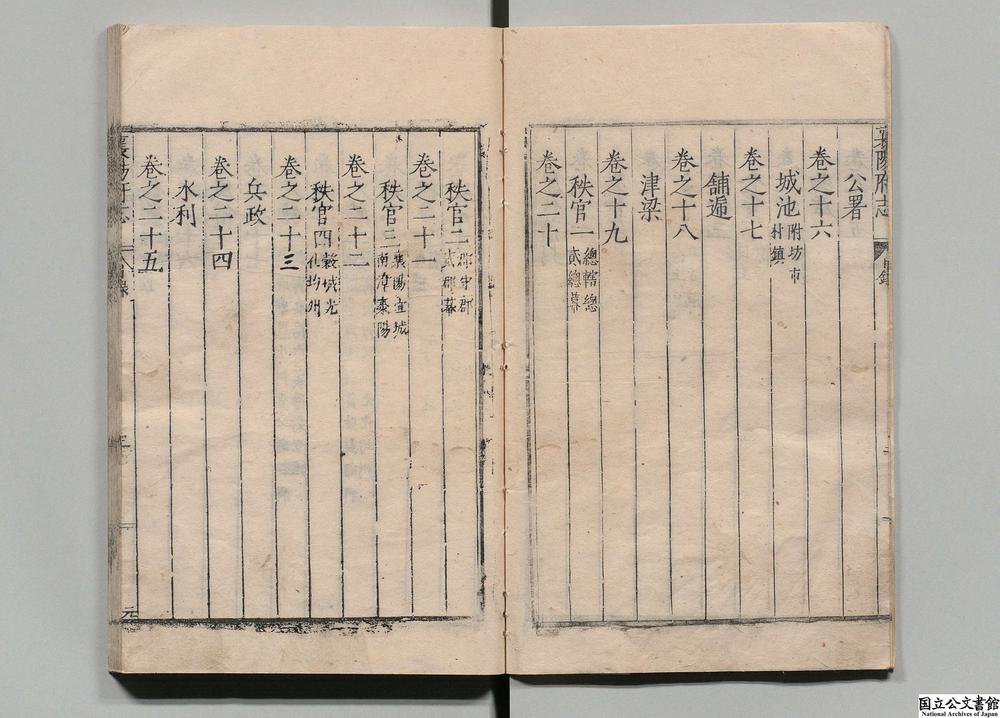 襄陽府志 目錄
公署
卷之十六
城池 附坊市村鎮
卷之十七
舖遞
卷之十八
津梁
卷之十九
秩官一 總轄總貳總幕
卷之二十
秩官二 郡守郡貳郡幕
卷之二十一
秩官三 襄陽宜城南漳棗陽
卷之二十二
秩官四 穀城光化均州
卷之二十三
兵政
卷之二十四
水利
卷之二十五
襄陽府志 目錄
国立公文書館
National Archives of Japan